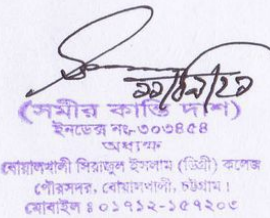 (সমীর কান্তি দাশ)
ইনডেক্স নং-৩০৩৪৫৪
অধ্যক্ষ
বোয়ালখালী সিরাজুল ইসলাম (ডিগ্রী) কলেজ
পৌরসদর, বোয়ালখালী, চট্টগ্রাম।
মোবাইল ঃ ০১৭১২-১৫৭২০৫